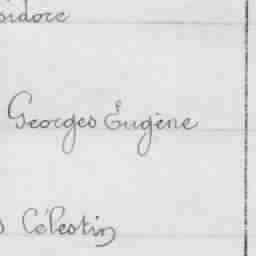 sidore
Georges Eugène
s Célestin